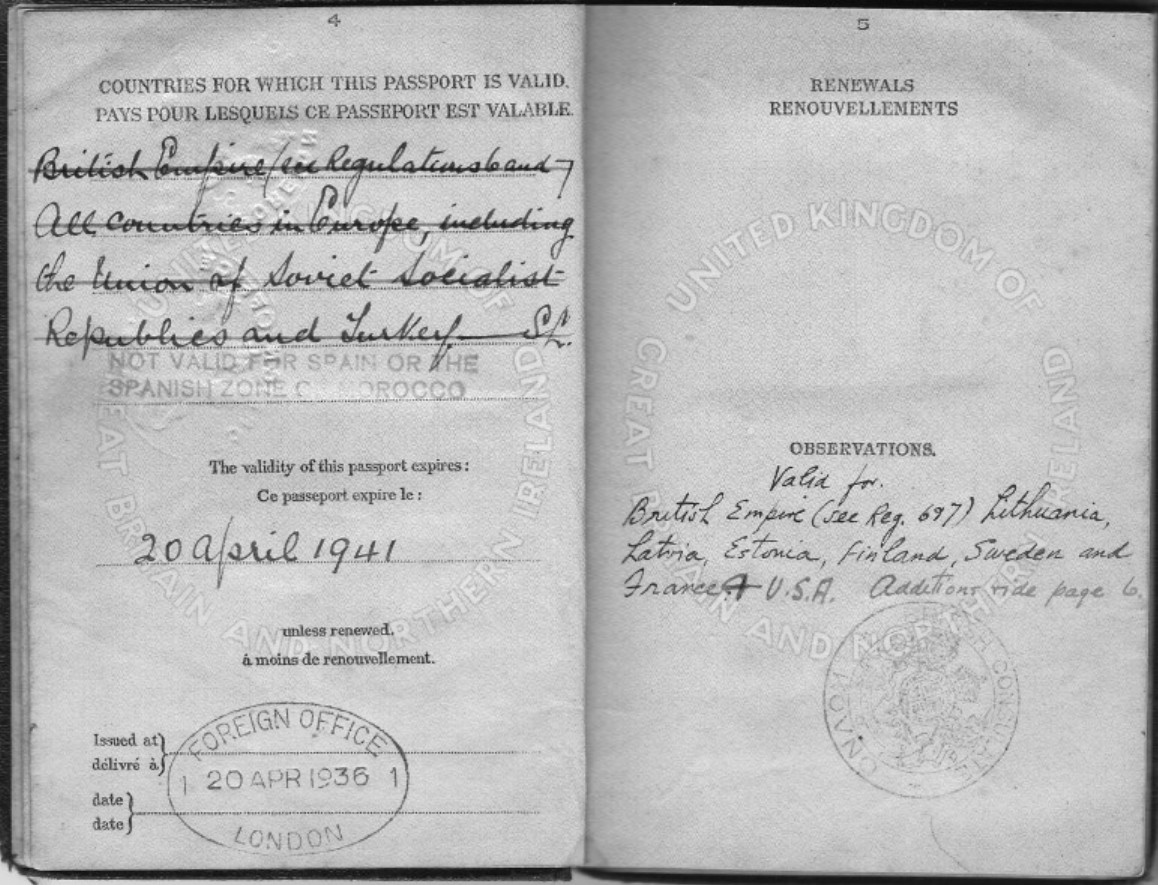 4
COUNTRIES FOR WHICH THIS PASSPORT IS VALID.
PAYS POUR LESQUELS CE PASSEPORT EST VALABLE.
British Empire (see Regulations 6 and 7
All countries in Europe, including
the Union of Soviet Socialist
Republics and Turkey. — SL.
NOT VALID FOR SPAIN OR THE
SPANISH ZONE OF MOROCCO
The validity of this passport expires:
Ce passeport expire le:
20 April 1941
unless renewed.
à moins de renouvellement.
Issued at
délivré à
date
date
FOREIGN OFFICE
1 20 APR 1936 1
LONDON
UNITED KINGDOM OF
GREAT BRITAIN AND NORTHERN IRELAND
5
RENEWALS
RENOUVELLEMENTS
UNITED KINGDOM OF
GREAT BRITAIN AND NORTHERN IRELAND
OBSERVATIONS.
Valid for.
British Empire (see Reg. 6&7) Lithuania,
Latvia, Estonia, Finland, Sweden and
France. + U.S.A. Additions vide page 6.
BRITISH CONSULATE
KOVNO